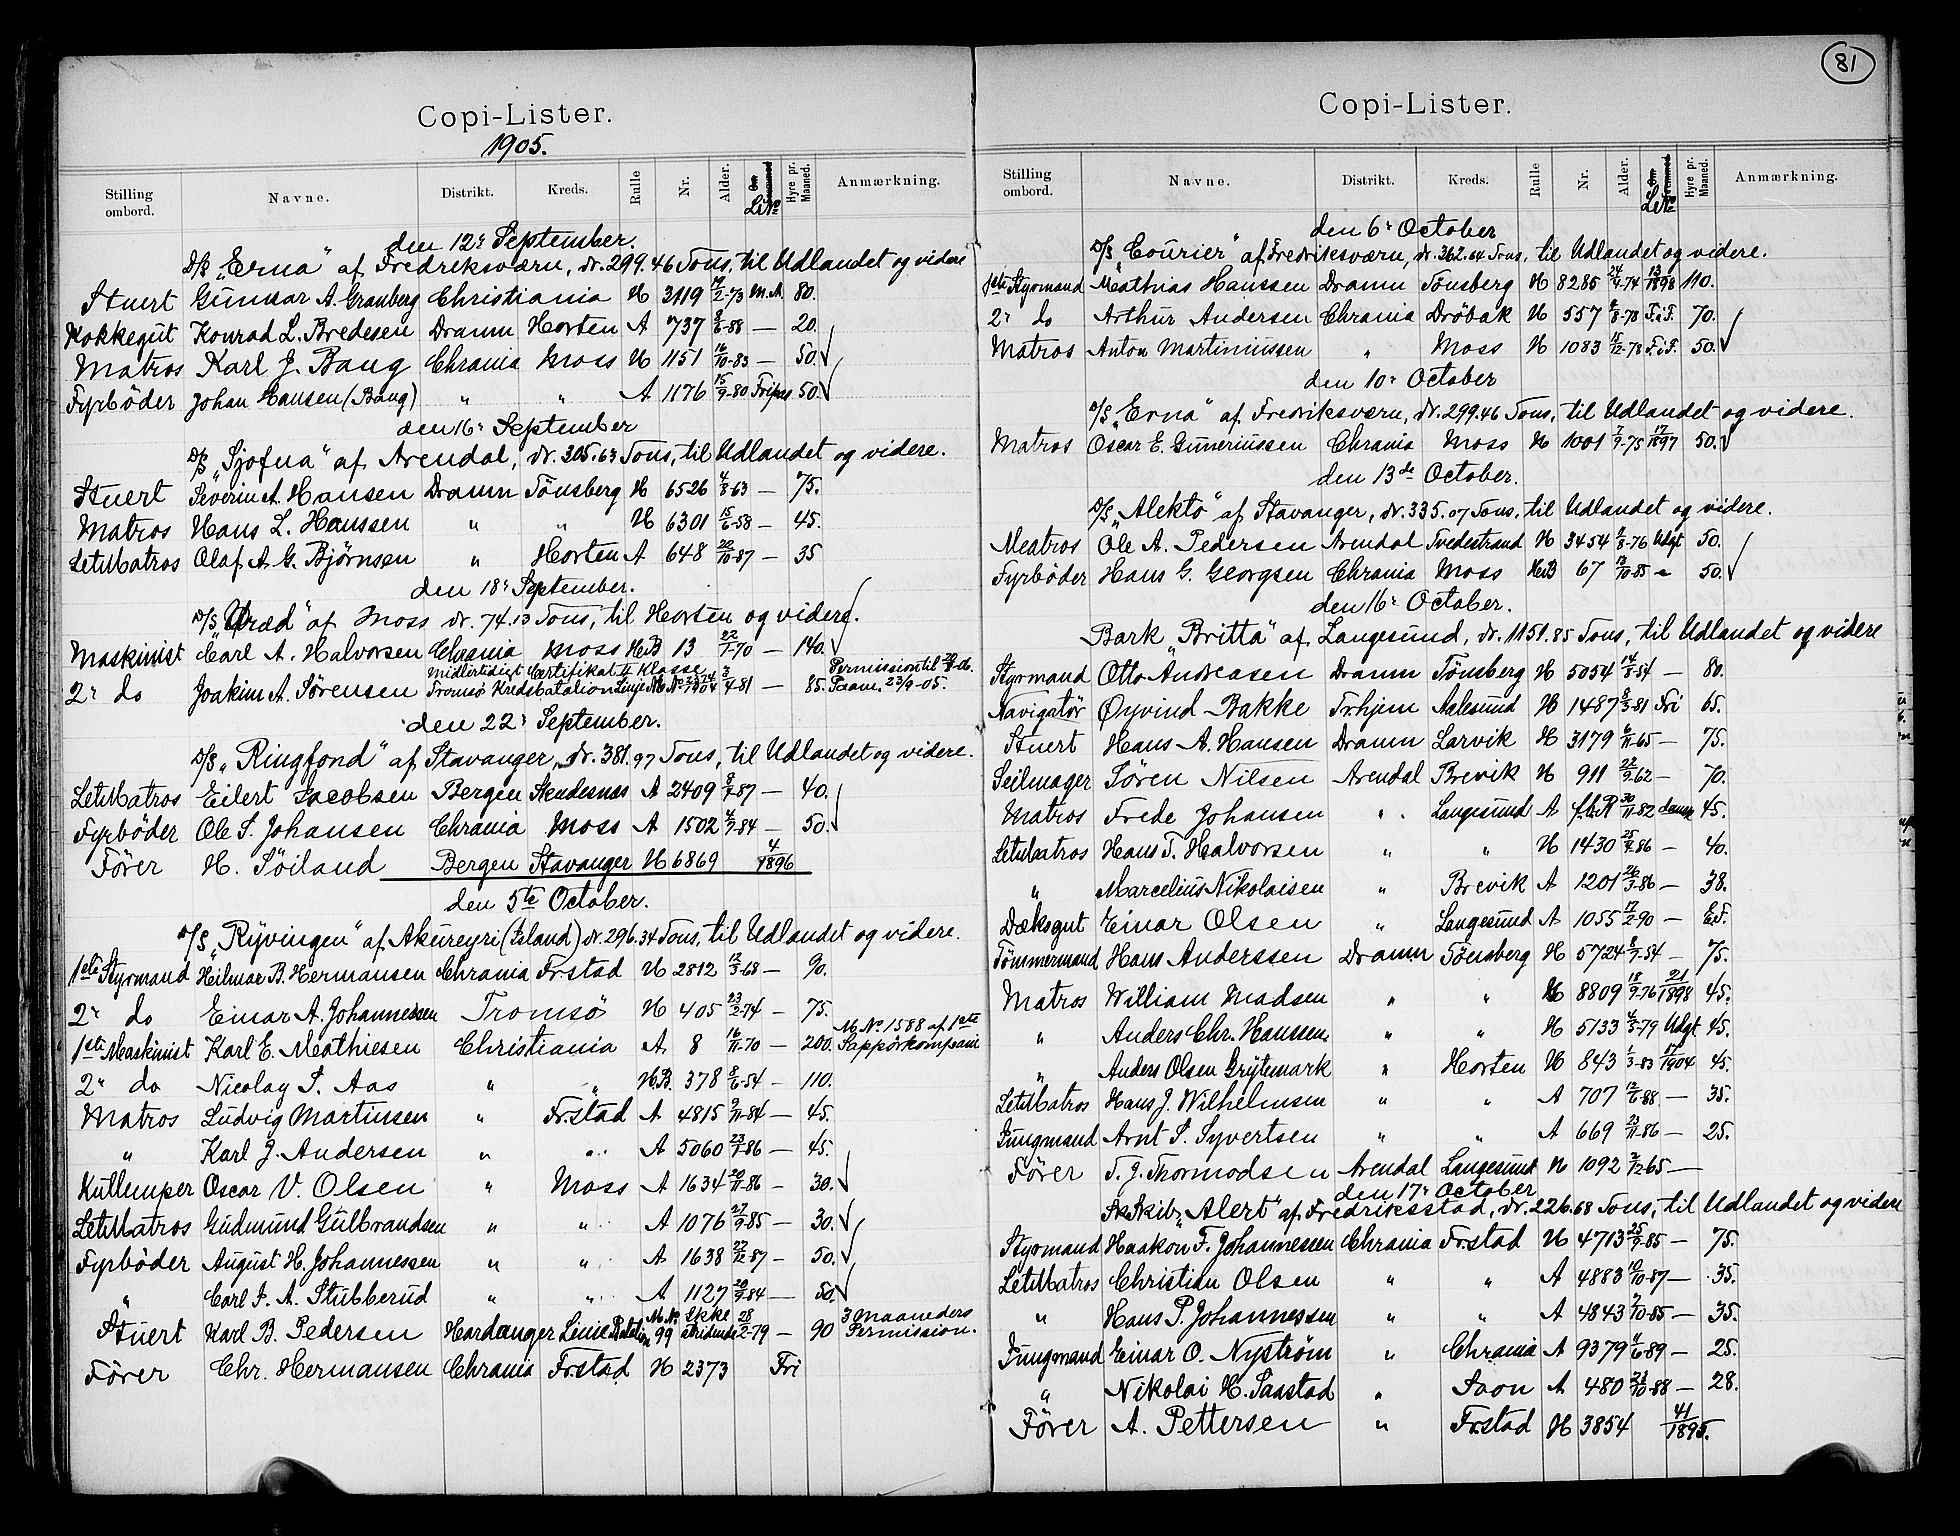 Copi-Lister.
1905.
Stilling ombord. Navne. Distrikt. Kreds. Rulle Nr. Alder. Le.No Hyre pr. Maaned. Anmærkning.
den 12te September.
D/S "Erna" af Fredriksværn, dr. 299.46 Tons, til Udlandet og videre
Stuert Gunnar A. Granberg Christiania H 3119 17/2-73 M.A. 80.
Kokkegut Konrad L. Bredesen Dramn Horten A 737 8/6-88 — 20.
Matros Karl J. Bang Chrania Moss H 1151 16/10-83 — 50.
Fyrböder Johan Hansen (Bang) " " A 1176 15/9-80 Fripas 50.
den 16r September
D/S "Sjofna" af Arendal, dr. 305.63 Tons, til Udlandet og videre.
Stuert Severin A. Hansen Dramn Tönsberg H 6526 4/8-63 — 75.
Matros Hans L. Hanssen " " H 6301 15/6-58 — 45.
LetMatros Olaf A. G. Bjørnsen " Horten A 648 20/10-87 — 35
den 18r September.
D/S "Uræd" af Moss dr. 74.13 Tons, til Horten og videre.
Maskinist Carl A. Halvorsen Chrania Moss H.B 13 22/7-70 — 140.
Midlertidigt Certifikat II Klasse
2r do Joakim A. Sørensen Tromsö Kredsbatalion Linje M.No 1904 3/4-81 — 85. Permission til Paam. 23/9-05.
den 22r September.
D/S "Ringfond" af Stavanger, dr. 381.97 Tons, til Udlandet og videre.
LetMatros Eilert Jacobsen Bergen Skudesnæs A 2409 8/7-87 — 40.
Fyrböder Ole S. Johansen Chrania Moss A 1502 4/9-84 — 50.
Förer H. Söiland Bergen Stavanger H 6869 4/1896
den 5te October.
D/S "Ryvingen" af Akureyri (Island) dr. 296.34 Tons, til Udlandet og videre.
1ste Styrmand Hilmar B. Hermansen Chrania Frstad H 2812 12/3-68 — 90.
2r do Einar A. Johannessen Tromsö H 405 23/2-74 — 75.
1ste Maskinist Karl E. Mathiesen Christiania A. 8 16/11-70 — 200. M.No 1588 af 1ste Sappörkompani
2r do Nicolay S. Aas " " H.B. 378 8/6-54 — 110.
Matros Ludvig Martinsen " Fr.stad A 4815 9/11-84 — 45.
" Karl J. Andersen " " A 5060 23/7-86 — 45.
Kullemper Oscar V. Olsen " Moss A 1634 20/11-86 — 30.
LetMatros Gudmund Gulbrandsen " " A 1076 27/9-85 — 30.
Fyrböder August H. Johannessen " " A 1638 27/12-87 — 50.
" Carl J. A. Stubberud " " A 1127 20/9-84 — 50.
Stuert Karl B. Pedersen Hardanger Linie Batalion M.No 99 Ikke stridende 28/2-79 — 90 3 Maaneders Permission.
Förer Chr. Hermansen Chrania Fr.stad H 2373 Fri
81
Copi-Lister.
Stilling ombord. Navne. Distrikt. Kreds. Rulle Nr. Alder. Le.No Hyre pr. Maaned. Anmærkning.
den 6r October
D/S "Courier" af Fredriksværn, dr. 362.64 Tons, til Udlandet og videre.
1ste Styrmand Mathias Hanssen Dramn Tönsberg H 8285 24/9-74 13/1898 110.
2r do Arthur Andersen Chrania Dröbak H 557 8/8-78 F.i.F. 70.
Matros Anton Martiniussen " Moss H 1083 15/12-78 F.i.F. 50.
den 10r October
D/S "Erna" af Fredriksværn, dr. 299.46 Tons, til Udlandet og videre.
Matros Oscar E. Guneriussen Chrania Moss H 1001 7/9-75 17/1897 50.
den 13de October.
D/S "Alekto" af Stavanger, dr. 335.07 Tons, til Udlandet og videre.
Matros Ole A. Pedersen Arendal Tvedestrand H 3454 11/8-76 Udgt 50.
Fyrböder Hans G. Georgsen Chrania Moss H.B 67 13/10-85 — 50.
den 16r October.
Bark "Britta" af Langesund, dr. 1151.85 Tons, til Udlandet og videre
Styrmand Otto Andreasen Dramn Tönsberg H 5054 14/8-54 — 80.
Navigatör Øyvind Bakke Trhjem Aalesund H 1487 8/3-81 Fri 65.
Stuert Hans A. Hansen Dramn Larvik H 3179 6/11-65 — 75.
Seilmager Sören Nilsen Arendal Brevik H 911 22/9-62 — 70.
Matros Frede Johansen " Langesund A f.b.R 30/11-82 45.
LetMatros Hans T. Halvorsen " " H 1430 25/4-86 — 40.
" Marcelius Nikolaisen " Brevik A 1201 26/3-86 — 38.
Dæksgut Einar Olsen " Langesund A 1055 17/2-90 —
Tömmermand Hans Anderssen Dramn Tönsberg H 5724 8/7-54 — 75.
Matros William Madsen " " H 8809 18/9-76 21/1898 45.
" Anders Chr. Hanssen " " H 5133 4/3-79 Udgt 45.
" Anders Olsen Grytemark " Horten H 843 1/3-83 17/1904 45.
LetMatros Hans J. Wilhelmsen " " A 707 12/6-88 — 35.
Jungmand Arnt S. Syvertsen " " A 669 23/11-86 — 25.
Förer T. J. Thormodsen Arendal Langesund H 1092 2/12-65 —
den 17r October
Sk.Skib "Alert" af Fredriksstad, dr. 226.68 Tons, til Udlandet og videre
Styrmand Haakon F. Johannessen Chrania Fr.stad H 4713 25/9-85 — 75.
LetMatros Christian Olsen " " A 4883 10/10-87 — 35.
" Hans P. Johannessen " " A 4843 7/10-85 — 35.
Jungmand Einar O. Nyström " Chrania A 9379 4/6-89 — 25.
" Nikolai H. Saastad " Soon A 480 23/10-88 — 28.
Förer A. Pettersen " Fr.stad H 3854 41/1895.